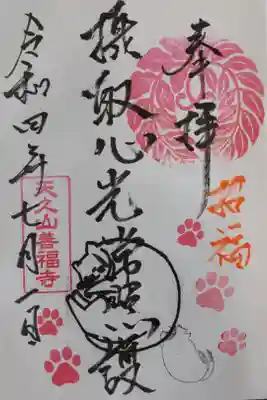 奉拝
招福
攝取心光常照護
令和四年七月一日
久山善福寺